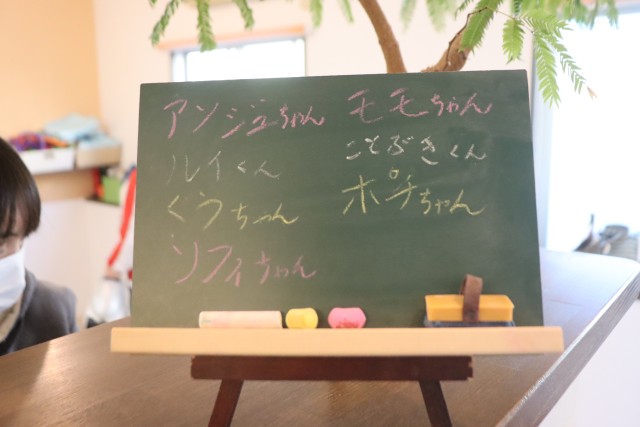 アンジュちゃん
ルイくん
くうちゃん
ソフィちゃん
モモちゃん
ことぶきくん
ポチちゃん